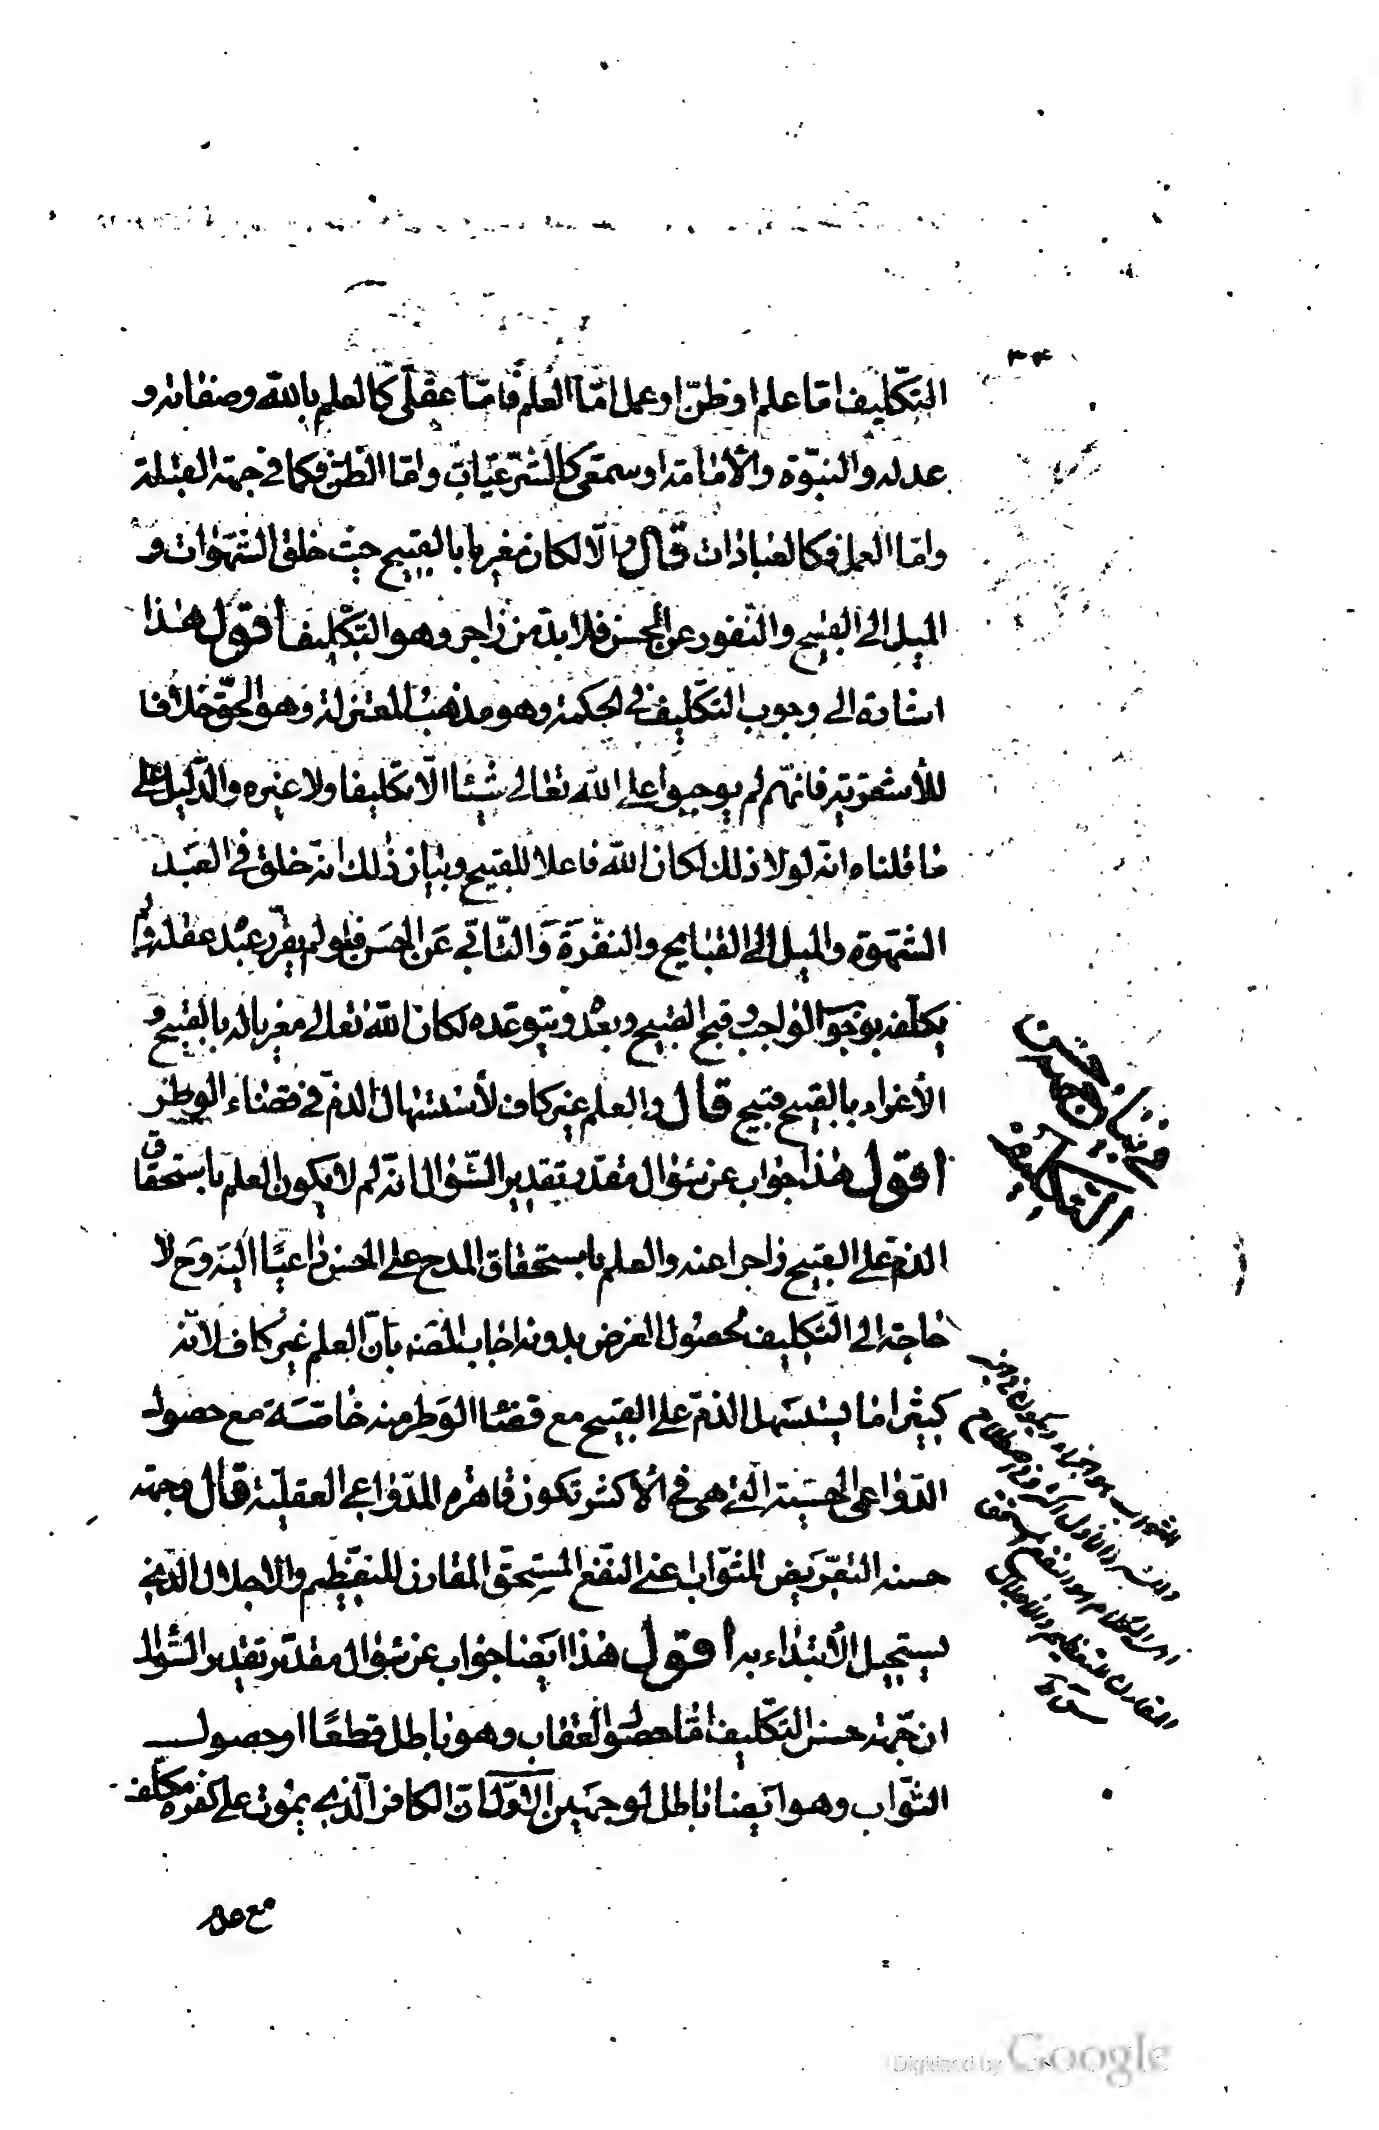 ٣٤
التكليف امّا علم او ظنّ او عمل امّا العلم فامّا عقلىّ كالعلم بالله وصفاته و
عدله والنبوّة والأمامة او سمعى كالشّرعيّات وامّا الظّنّ فكما فى جهة القبلة
وامّا العمل فكالعبادات قال والّا لكان مغريا بالقبيح حيث خلق الشّهوات و
الميل الى القبيح والنّفور عن الحسن فلا بدّ من زاجر وهو التّكليف أقول هذا
اشارة الى وجوب التّكليف فى الحكمة وهو مذهب المعتزلة وهو الحقّ خلافا
للأشعريّة فانّهم لم يوجبوا على الله تعالى شيئا لا تكليفا ولا غيره والدّليل على
ما قلناه انّه لولا ذلك لكان الله فاعلا للقبيح وبيان ذلك انّه خلق فى العبد
الشّهوة والميل الى القبايح والنفّرة والتّابّى عن الحسن فلو لم يقرّر عنده عقله ولم
يكلّفه بوجوب الواجب وقبح القبيح ويعده ويتوعّده لكان الله تعالى مغريا له بالقبيح و
الأغراء بالقبيح قبيح قال والعلم غير كاف لأستسهال الذمّ فى قضاء الوطر
اقول هذا جواب عن سؤال مقدّر تقدير السّؤال انّه لم لا يكون العلم باستحقاق
الذمّ على القبيح زاجرا عنه والعلم باستحقاق المدح على الحسن داعيًا اليه وح لا
حاجة الى التّكليف لحصول الغرض بدونه اجاب المصّه بانّ العلم غير كاف لانّه
كثيرا ما يستسهل الذمّ على القبيح مع قضاء الوطر منه خاصّة مع حصول
الدّواعى الحسّيّة الّتى هى فى الأكثر تكون قاهرة للدّواعى العقليّة قال وجهة
حسنه التّعريض للثّواب اعنى النّفع المستحقّ المقارن للتّعظيم والاجلال الّذى
يستحيل الأبتداء به أقول هذا ايضا جواب عن سؤال مقدّر تقدير السّؤال
ان جهة حسن التّكليف امّا حصول العقاب وهو باطل قطعًا او حصول
الثّواب وهو ايضا باطل لوجهين الاوّل انّ الكافر الّذى يموت على كفره مكلّف
فى بيان جهة حسن
التّكليف
المقارن للتعظيم والاجلال